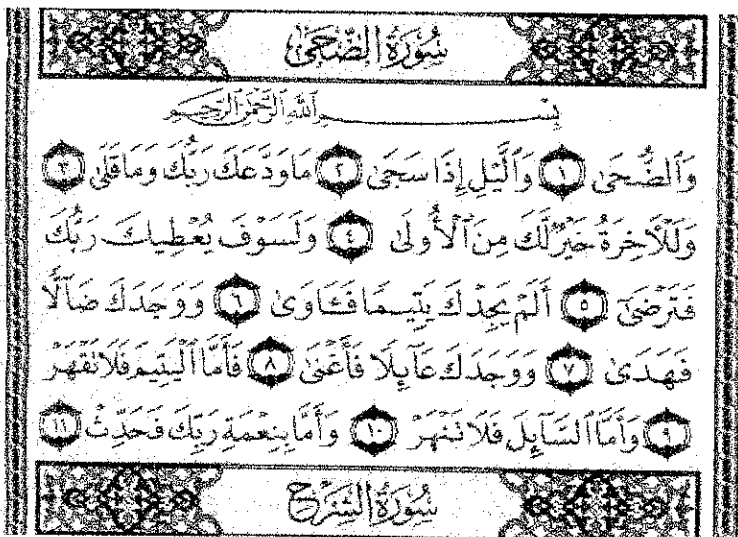 سُورَةُ الضُّحَىٰ
بِسْمِ اللَّهِ الرَّحْمَٰنِ الرَّحِيمِ
وَٱلضُّحَىٰ ١ وَٱلَّيْلِ إِذَا سَجَىٰ ٢ مَا وَدَّعَكَ رَبُّكَ وَمَا قَلَىٰ ٣
وَلَلْـَٔاخِرَةُ خَيْرٌ لَّكَ مِنَ ٱلْأُولَىٰ ٤ وَلَسَوْفَ يُعْطِيكَ رَبُّكَ
فَتَرْضَىٰٓ ٥ أَلَمْ يَجِدْكَ يَتِيمًا فَـَٔاوَىٰ ٦ وَوَجَدَكَ ضَآلًّا
فَهَدَىٰ ٧ وَوَجَدَكَ عَآئِلًا فَأَغْنَىٰ ٨ فَأَمَّا ٱلْيَتِيمَ فَلَا تَقْهَرْ
٩ وَأَمَّا ٱلسَّآئِلَ فَلَا تَنْهَرْ ١٠ وَأَمَّا بِنِعْمَةِ رَبِّكَ فَحَدِّثْ ١١
سُورَةُ الشَّرْحِ